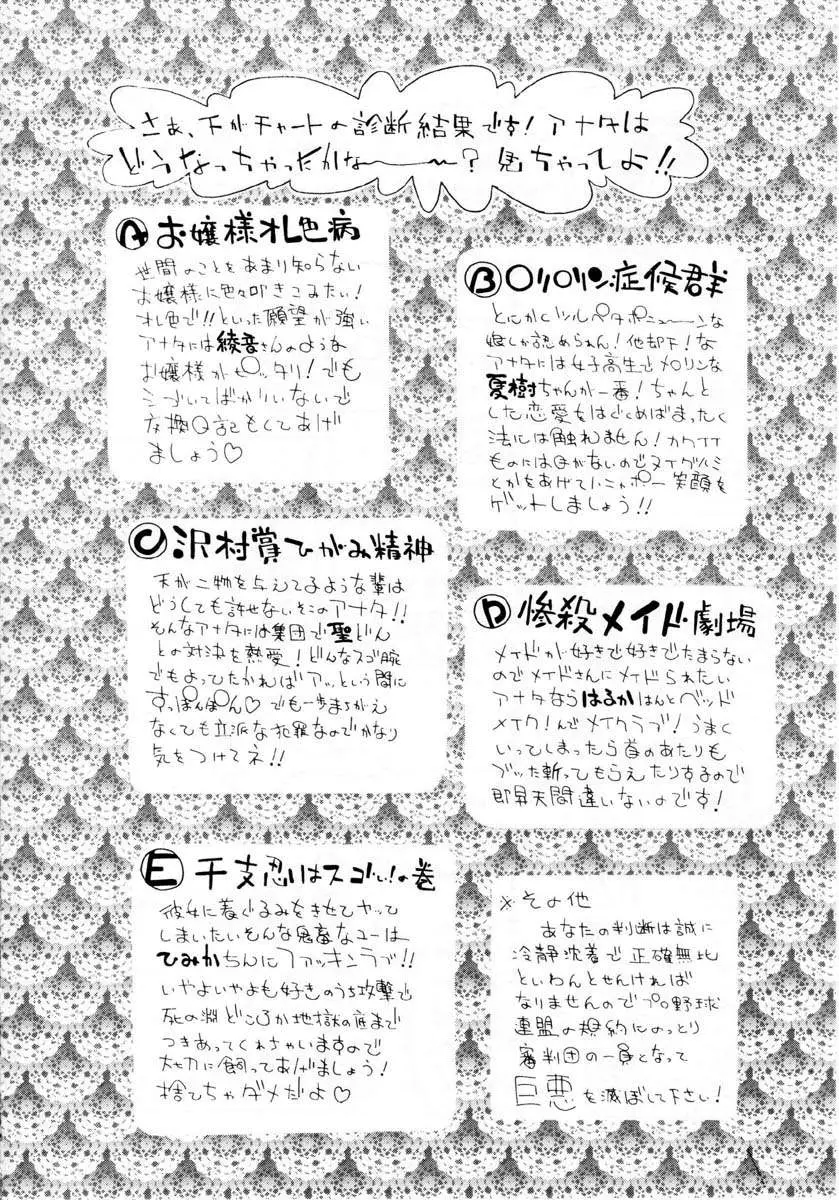 さぁ、下がチャートの診断結果です！アナタは
どうなっちゃったかな〜〜？見ちゃってしょ!!
A お嬢様オレ色病
世間のことをあまり知らない
お嬢様に色々叩きこみたい！
オレ色で!!といった願望が強い
アナタには綾音さんのような
お嬢様がピッタリ！でも
ばかりいないで
交換日記もしてあげ
ましょう♡
C 沢村賞ひがみ精神
天が二物を与えてるような輩は
どうしても許せないそこのアナタ!!
そんなアナタには集団で聖どん
との対決を熱愛！どんなスゴ腕
でもよってたかればアッという間に
すっぽんぽん♡でも一歩まちがえ
なくても立派な犯罪なのでかなり
気をつけてネ!!
D 惨殺メイド劇場
メイドが好きで好きでたまらない
のでメイドさんにメイドられたい
アナタならはるかはんとベッド
メイク！んでメイクラブ！うまく
いってしまったら首のあたりも
ブッた斬ってもらえたりするので
即昇天間違いないのです！
E 干支忍はスゴい！の巻
彼女に着ぐるみをきせてヤッて
しまいたいそんな鬼畜なユーは
ひみかちんにファッキンラブ!!
いやよいやよも好きのうち攻撃で
死の淵どころか地獄の底まで
つきあってくれちゃいますので
大切に飼ってあげましょう！
捨てちゃダメだよ♡
※その他
あなたの判断は誠に
冷静沈着で正確無比
といわんとせんければ
なりませんのでプロ野球
連盟の規約にのっとり
審判団の一員となって
巨悪を滅ぼして下さい！